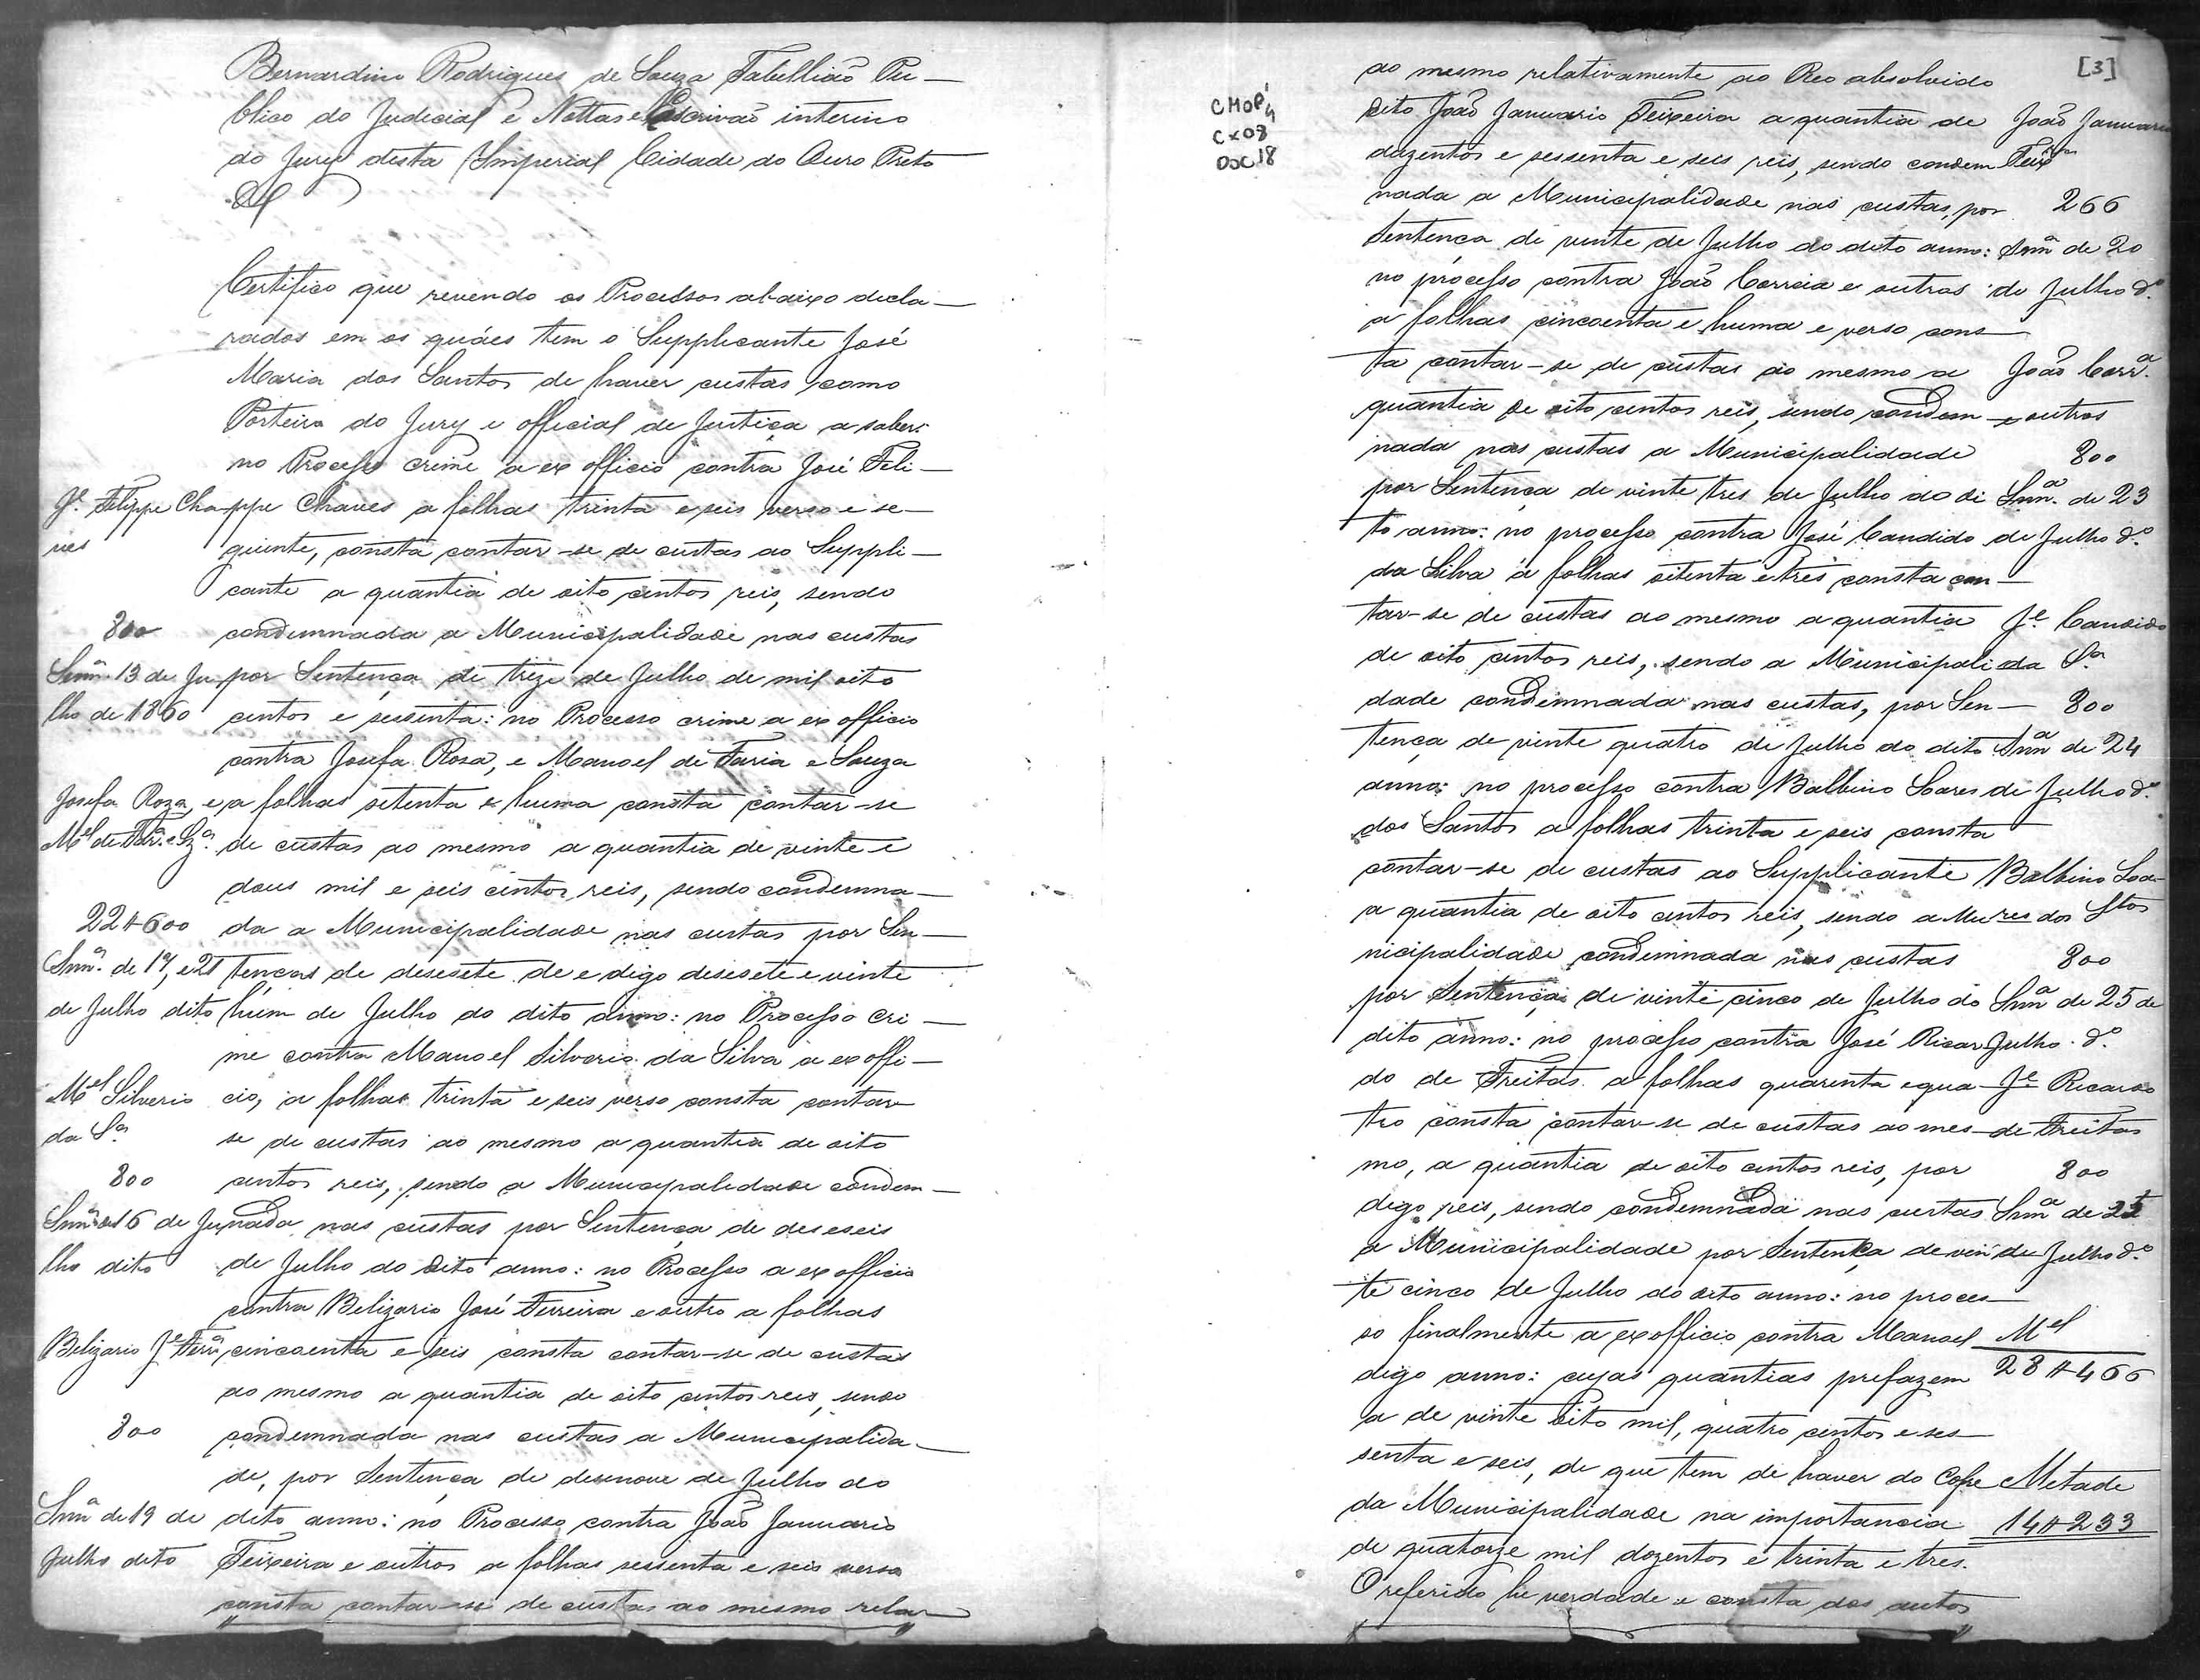 Bernardino Rodrigues de Souza Tabellião Pu-
blico do Judicial e Nottas e Escrivão interino
do Jury desta Imperial Cidade do Ouro Preto
&
Certifico que revendo os Processos abaixo decla-
rados em os quáes tem o Supplicante José
Maria dos Santos de haver custas como
Porteiro do Jury e official de Justiça a saber:
no Processo crime a ex officio contra José Feli-
Je. Filippe Cha- ppe Chaves a folhas trinta e seis verso e se-
ves guinte, consta contar-se de custas ao Suppli-
cante a quantia de oito centos reis, sendo
800 condemnada a Municipalidade nas custas
Snnª. 13 de Ju- por Sentença de treze de Julho de mil oito
lho de 1860 centos e sessenta: no Processo crime a ex officio
contra Josefa Rosa, e Manoel de Faria e Souza
Josefa Roza, e a folhas setenta e huma consta contar-se
Mel de Farª. e Sza. de custas ao mesmo a quantia de vinte e
dous mil e seis centos reis, sendo condemna-
22#600 da a Municipalidade nas custas por Sen-
Snnª. de 17, e 21 tenças de desesete de e digo desesete e vinte
de Julho dito hum de Julho do dito anno: no Processo cri-
me contra Manoel Silverio da Silva a ex offi-
Mel Silverio cio, a folhas trinta e seis verso consta contar
da Sª se de custas ao mesmo a quantia de oito
800 centos reis, sendo a Municipalidade condem-
Snnª de 16 de Ju- nada nas custas por Sentença de deseseis
lho dito de Julho do dito anno: no Processo a ex officio
contra Belizario José Ferreira e outro a folhas
Belizario Je Ferrª cincoenta e seis consta contar-se de custas
ao mesmo a quantia de oito centos reis, sendo
800 condemnada nas custas a Municipalida-
de, por Sentença de desenove de Julho do
Snnª de 19 de dito anno: no Processo contra João Januario
Julho dito Teixeira e outros a folhas sessenta e seis verso
consta contar-se de custas ao mesmo relar
[3]
CMOP
Cx08
Doc 18
ao mesmo relativamente ao Reo absolvido
dito João Januario Teixeira a quantia de João Januario
duzentos e sessenta e seis reis, sendo condem Teixrª
nada a Municipalidade nas custas, por 266
Sentença de vinte de Julho do dito anno: Snnª de 20
no processo contra João Correia e outros de Julho dº.
a folhas cincoenta e huma e verso cons-
ta contar-se de custas ao mesmo a João Corrª.
quantia de oito centos reis, sendo condem- e outros
nada nas custas a Municipalidade 800
por Sentença de vinte tres de Julho do di Snnª. de 23
to anno: no processo contra José Candido de Julho dº.
da Silva a folhas setenta e tres consta con-
tar-se de custas ao mesmo a quantia Je Candido
de oito centos reis, sendo a Municipali da Sª
dade condemnada nas custas, por Sen- 800
tença de vinte quatro de Julho do dito Snnª de 24
anno: no processo contra Balbino Soares de Julho dº.
dos Santos a folhas trinta e seis consta
contar-se de custas ao Supplicante Balbino Soa-
a quantia de oito centos reis, sendo a Mu res dos Stos
nicipalidade condemnada nas custas 800
por Sentença de vinte cinco de Julho do Snnª de 25 de
dito anno: no processo contra José Ricar Julho dº.
do de Freitas a folhas quarenta e qua- Je Ricardo
tro consta contar-se de custas ao mes- de Freitas
mo, a quantia de oito centos reis, por 800
digo reis, sendo condemnada nas custas Snnª de 25
a Municipalidade por Sentença de vin de Julho dº.
te cinco de Julho do dito anno: no proces-
so finalmente a ex officio contra Manoel Mel
digo anno: cujas quantias prefazem 28#466
a de vinte oito mil, quatro centos e ses-
senta e seis, de que tem de haver do Cofre Metade
da Municipalidade na importancia 14#233
de quatorze mil dozentos e trinta e tres.
O referido he verdade e consta dos autos